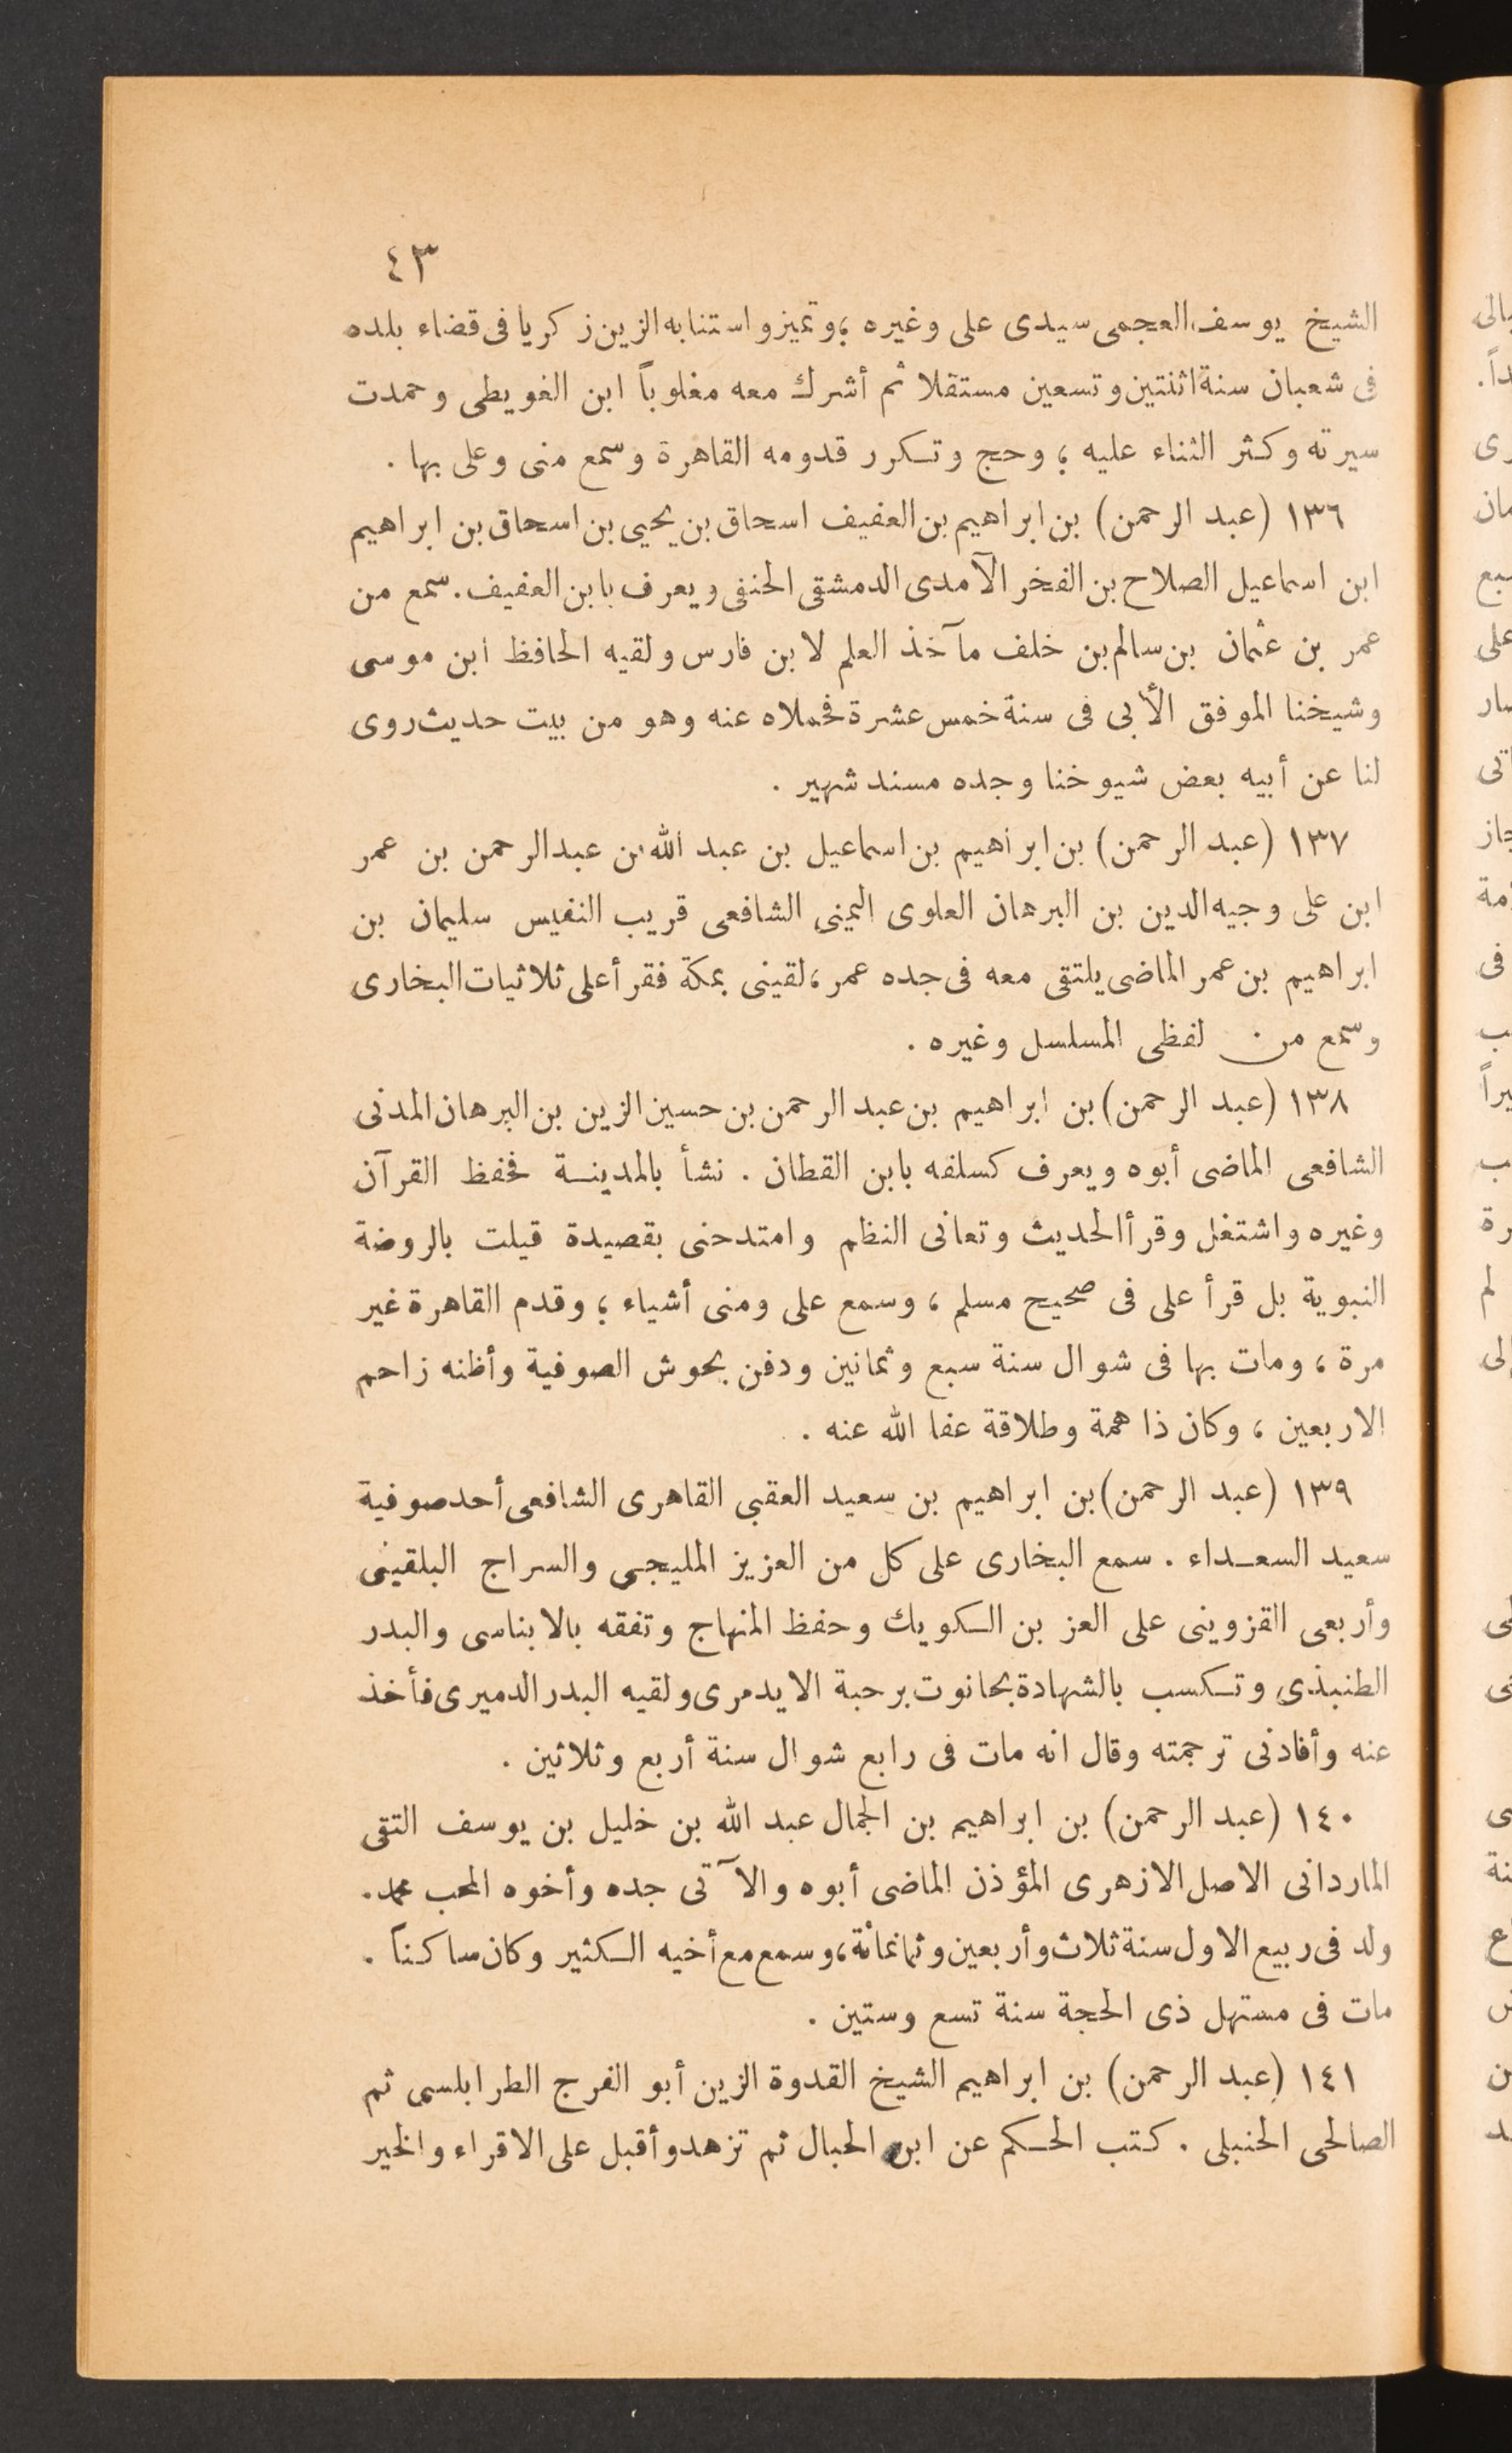 ٤٣
الشيخ يوسف العجمى سيدى على وغيره ؛ وتميز واستنابه الزين زكريا فى قضاء بلده
فى شعبان سنة اثنتين وتسعين مستقلا ثم أشرك معه مغلوباً ابن الغويطى وحمدت
سيرته وكثر الثناء عليه ؛ وحج وتكرر قدومه القاهرة وسمع منى وعلى بها .
١٣٦ (عبد الرحمن) بن ابراهيم بن العفيف اسحاق بن يحيى بن اسحاق بن ابراهيم
ابن اسماعيل الصلاح بن الفخر الآمدى الدمشقى الحنفى ويعرف بابن العفيف . سمع من
عمر بن عثمان بن سالم بن خلف مآخذ العلم لابن فارس ولقيه الحافظ ابن موسى
وشيخنا الموفق الأبى فى سنة خمس عشرة فحملاه عنه وهو من بيت حديث روى
لنا عن أبيه بعض شيوخنا وجده مسند شهير .
١٣٧ (عبد الرحمن) بن ابراهيم بن اسماعيل بن عبد الله بن عبد الرحمن بن عمر
ابن على وجيه الدين بن البرهان العلوى اليمنى الشافعى قريب النفيس سليمان بن
ابراهيم بن عمر الماضى يلتقى معه فى جده عمر ، لقينى بمكة فقرأ على ثلاثيات البخارى
وسمع من لفظى المسلسل وغيره .
١٣٨ (عبد الرحمن) بن ابراهيم بن عبد الرحمن بن حسين الزين بن البرهان المدنى
الشافعى الماضى أبوه ويعرف كسلفه بابن القطان . نشأ بالمدينة فحفظ القرآن
وغيره واشتغل وقرأ الحديث وتعانى النظم وامتدحنى بقصيدة قيلت بالروضة
النبوية بل قرأ على فى صحيح مسلم ، وسمع على ومنى أشياء ؛ وقدم القاهرة غير
مرة ، ومات بها فى شوال سنة سبع وثمانين ودفن بحوش الصوفية وأظنه زاحم
الاربعين ، وكان ذا همة وطلاقة عفا الله عنه .
١٣٩ (عبد الرحمن) بن ابراهيم بن سعيد العقبى القاهرى الشافعى أحد صوفية
سعيد السعداء . سمع البخارى على كل من العزيز المليجى والسراج البلقينى
وأربعى القزوينى على العز بن الكويك وحفظ المنهاج وتفقه بالابناسى والبدر
الطنبذى وتكسب بالشهادة بحانوت برحبة الايدمرى ولقيه البدر الدميرى فأخذ
عنه وأفادنى ترجمته وقال انه مات فى رابع شوال سنة أربع وثلاثين .
١٤٠ (عبد الرحمن) بن ابراهيم بن الجمال عبد الله بن خليل بن يوسف التقى
الماردانى الاصل الازهرى المؤذن الماضى أبوه والآتى جده وأخوه المحب محمد .
ولد فى ربيع الاول سنة ثلاث وأربعين وثمانمائة ، وسمع مع أخيه الكثير وكان ساكناً .
مات فى مستهل ذى الحجة سنة تسع وستين .
١٤١ (عبد الرحمن) بن ابراهيم الشيخ القدوة الزين أبو الفرج الطرابلسى ثم
الصالحى الحنبلى . كتب الحكم عن ابن الحبال ثم تزهد وأقبل على الاقراء والخير